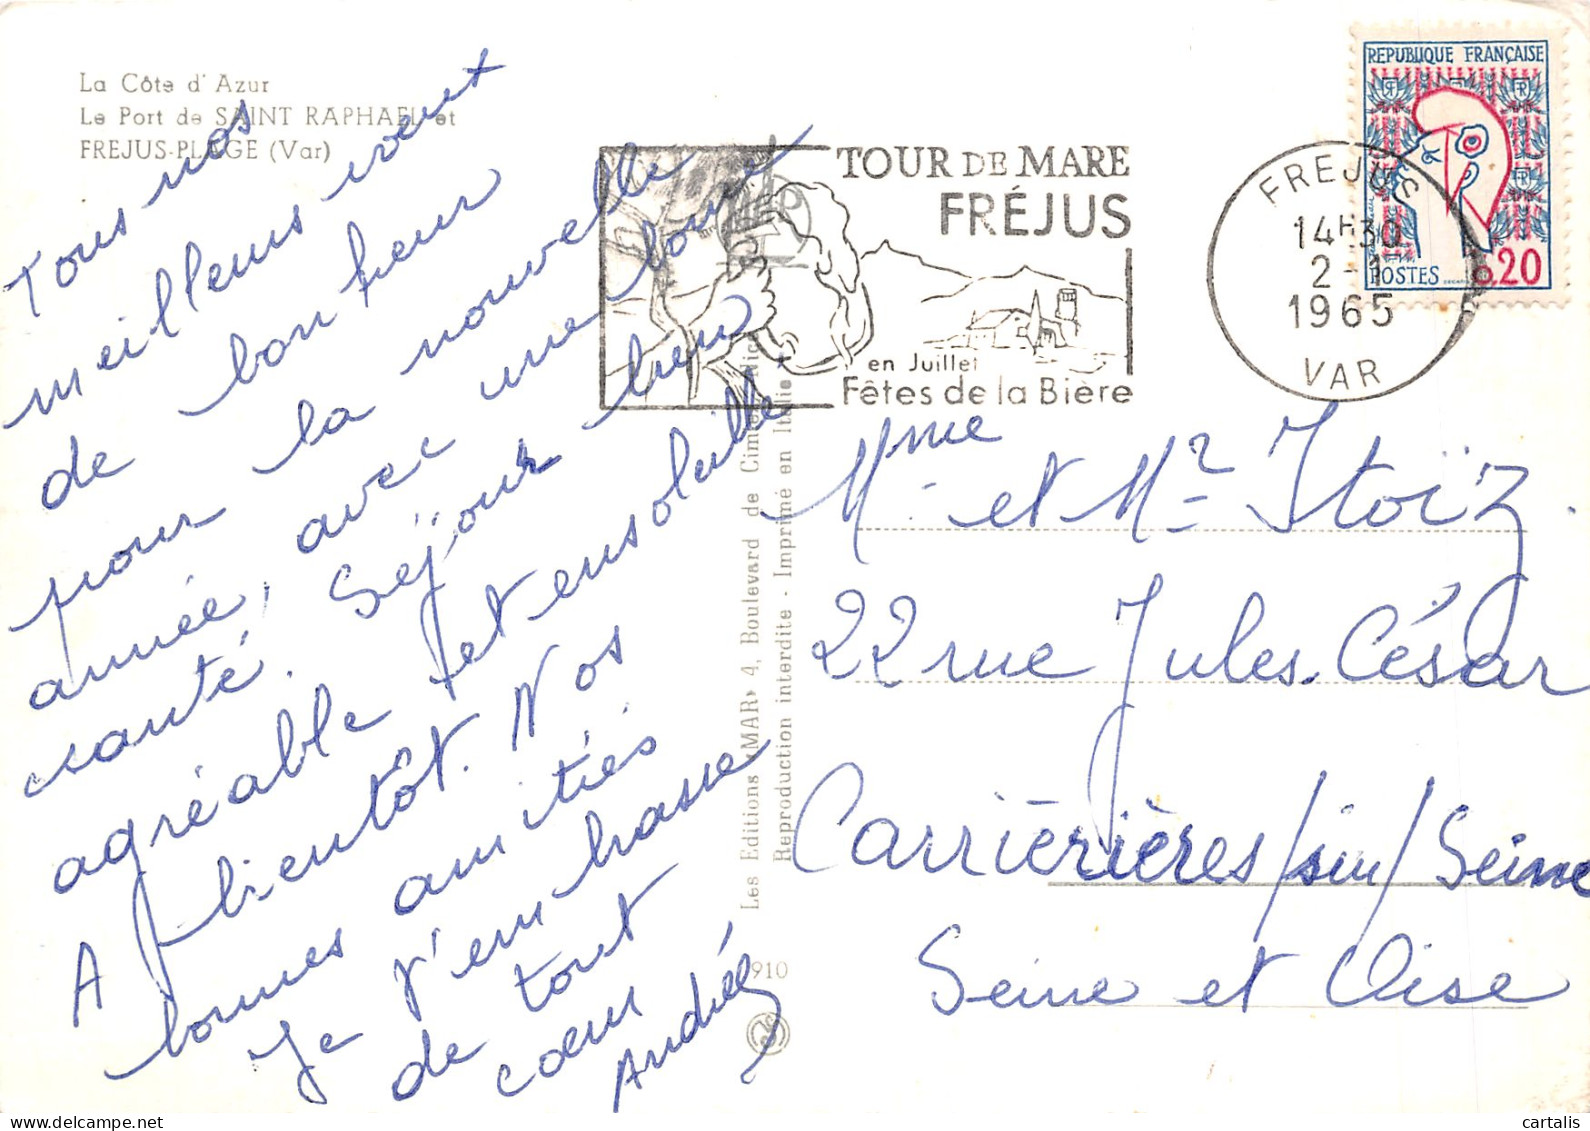 La Côte d'Azur
Le Port de SAINT RAPHAEL et
FREJUS-PLAGE (Var)
Tous nos
meilleurs vœux
de bonheur
pour la nouvelle
année, avec une bonne
santé. Séjour bien
agréable et ensoleillé
A bientôt. Nos
bonnes amitiés
Je t'embrasse
de tout
cœur
Andrée
Les Editions «MAR» 4, Boulevard de Cimiez, Nice
Reproduction interdite - Imprimé en Italie
910
TOUR DE MARE
FRÉJUS
en Juillet
Fêtes de la Bière
FREJUS
14H30
2-1
1965
VAR
REPUBLIQUE FRANÇAISE
POSTES
0,20
Mme et Mr Itoïz.
22 rue Jules César
Carrièrières/sur/Seine
Seine et Oise
cartalis